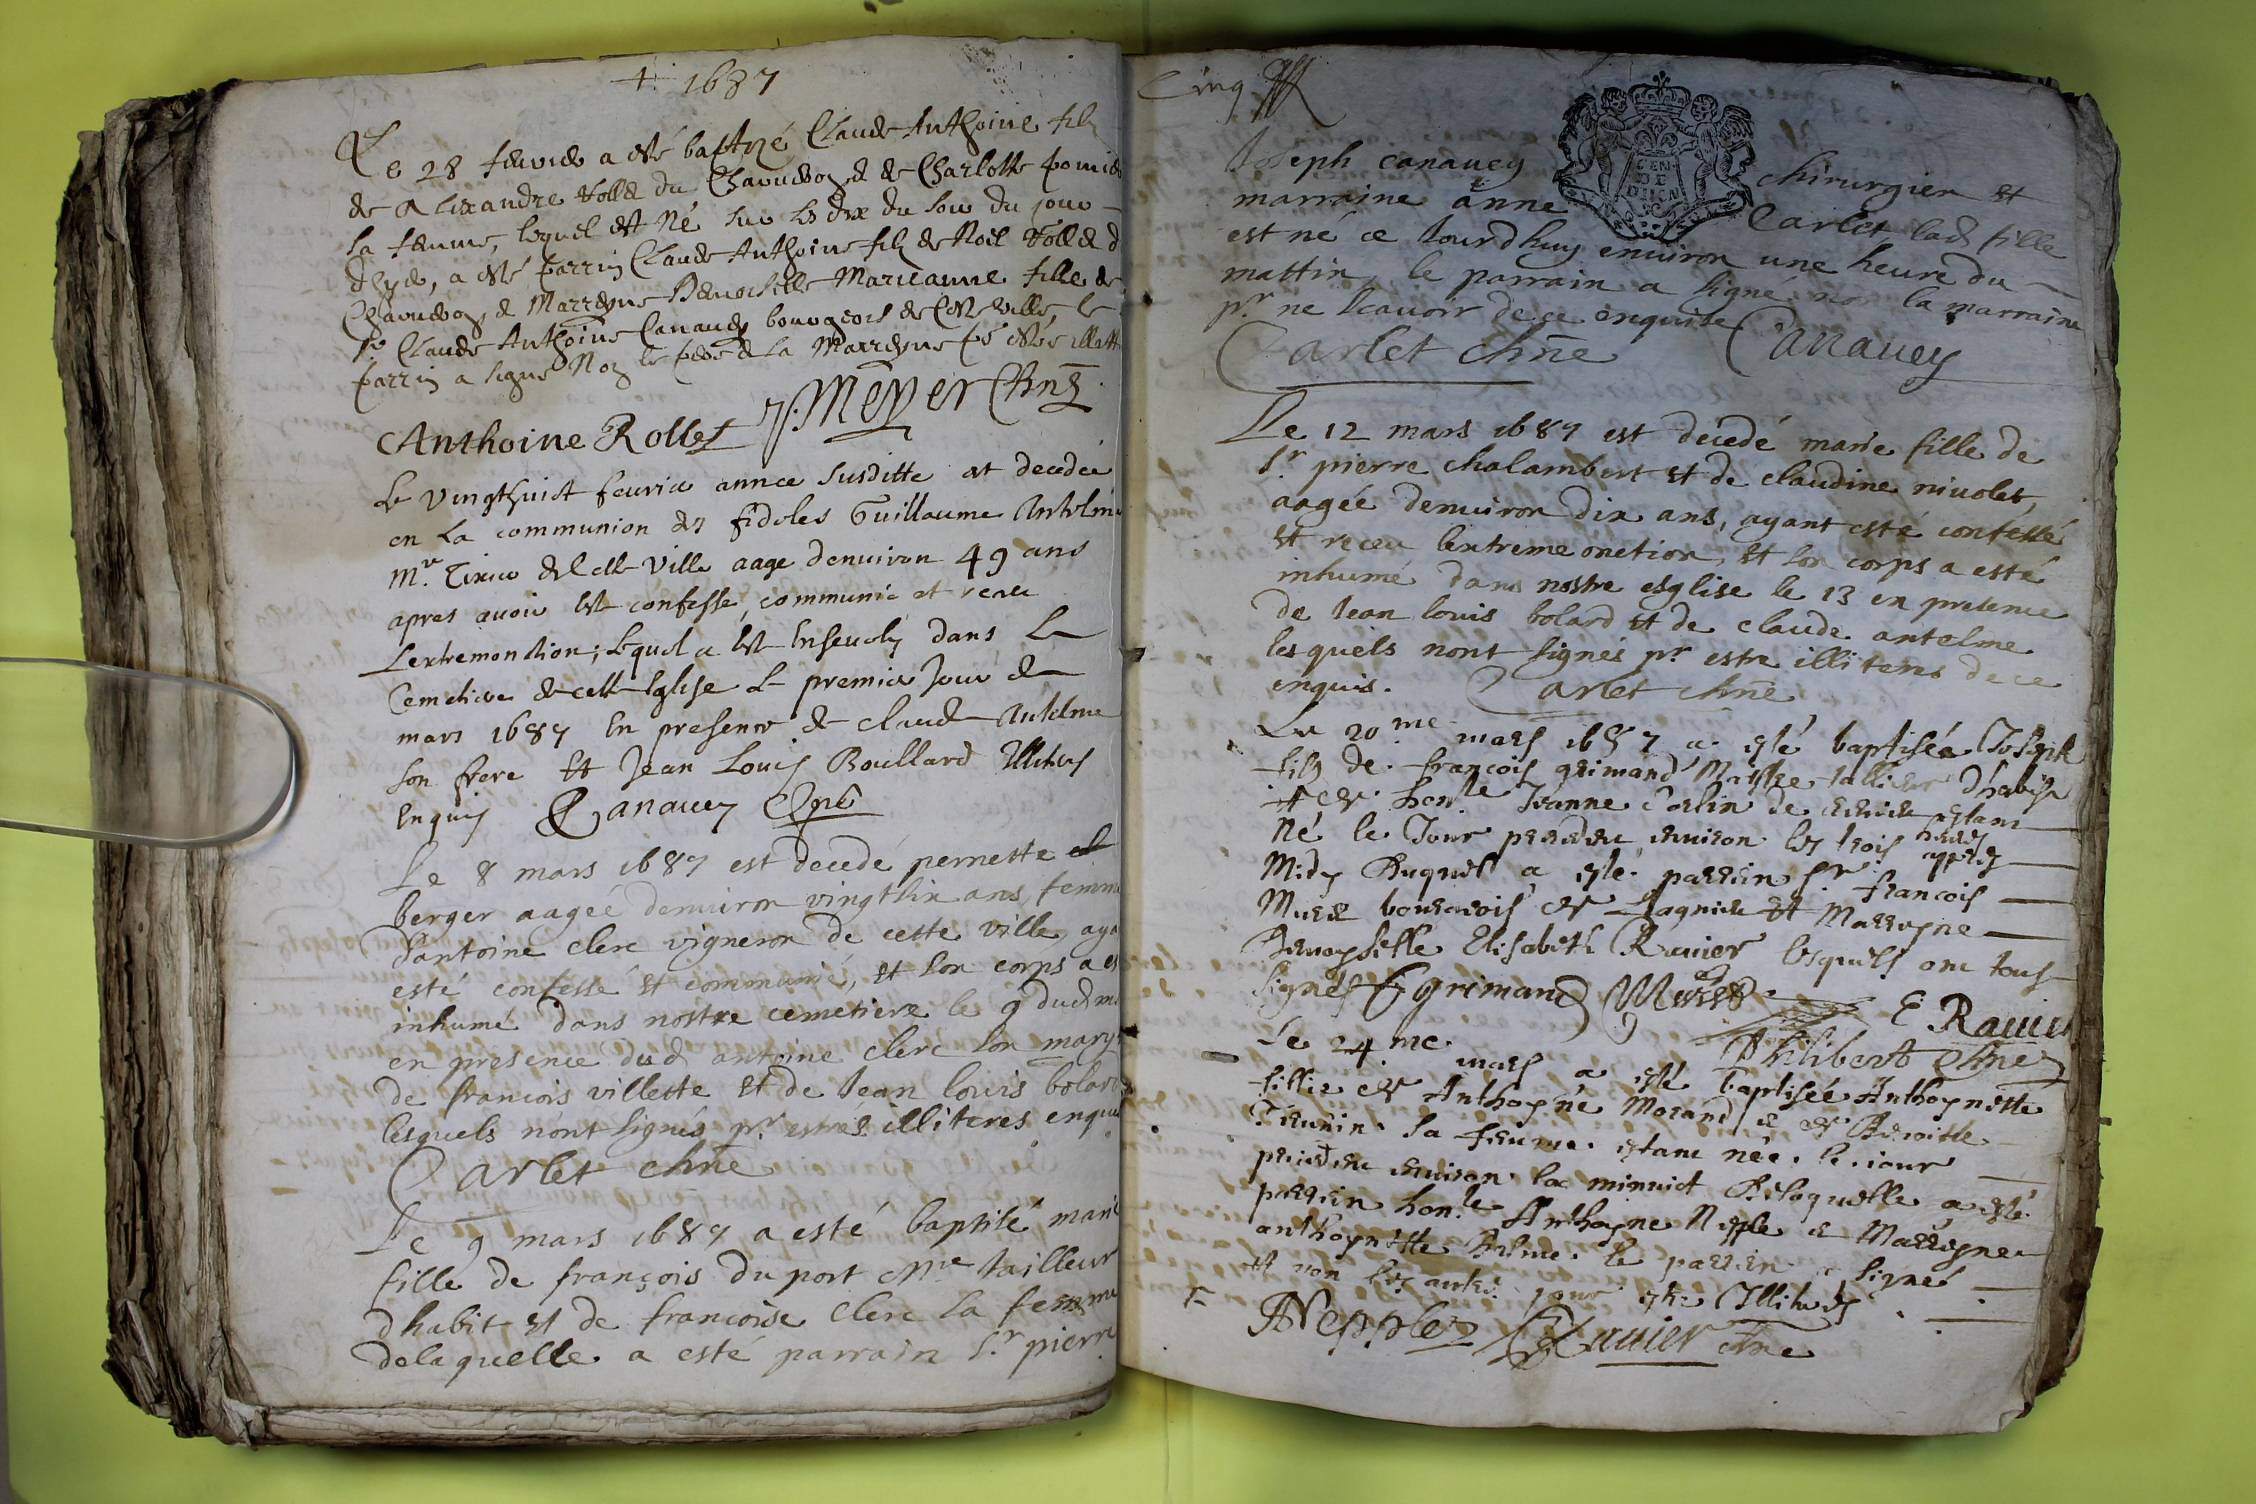 + 1687
Le 28 feuvrier a esté baptizé Claude Anthoine filz
de Alixandre Rollet du Chauuebon et de Charlotte
sa femme, lequel est Né sur les dix du soir du jour
dhyer, a esté Parrin Claude Anthoine filz de Noël Rollet
et Marreyne Demoiselle Marieanne fille de
Sr Claude Anthoine Canauey bourgeois de Ceste ville, le
Parrin a signé Non le pere et la Marreyne
Anthoine Rollet Meyer Chne
Le vingthuict feurier annee susditte at decedee
en La communion des fidoles Guillaume Antelme
Mre de celle Ville aage denuiron 49 ans
apres auoir esté confessé, communié et receu
Lextremonction; Lequel a esté Enseuely dans Le
Cemetiere de celle Eglise Le premier Jour de
mars 1687 En presence de claude Antelme
son frere Et Jean Louis Boullard Illiteres
Enquis Canauey Chne
Le 8 mars 1687 est decedé pernette
berger aagée denuiron vingtsix ans, femme
dantoine clerc vigneron de ceste ville
esté confessé et communié, et son corps a
inhumé dans nostre cemetiere le 9 dud
en presence dud antoine clerc son mary
de francois villette et de Jean louis bolard
lesquels nont signés pr estres illiteres enquis
Carlet chne
Le 9 mars 1687 a esté baptisé marie
fille de françois du port mre tailleur
dhabit et de francoise clerc sa femme
delaquelle a esté parrain Sr pierre
Cinq
Joseph canauey chirurgien et
marraine anne Carlet lad fille
est né ce Jourdhuy enuiron une heure du
mattin, le parrain a signé non la marraine
pr ne scauoir de ce enquise
Carlet chne Canauey
Le 12 mars 1687 est decedé marie fille de
Sr pierre chalambert et de claudine niuolet,
aagée denuiron dix ans, ayant esté confessé
et receu lextreme onction, et son corps a esté
inhumé dans nostre esglise le 13 en presence
de Jean louis bolard et de claude antelme
lesquels nont signés pr estre illiteres de ce
enquis. Carlet chne
Le 20me mars 1687 a esté baptisée Joseph
filz de francois grimand Maistre tallieur d'habitz
et de honle Jeanne estant
Né le Jour precedent enuiron les trois heures
appres
Midy Duquel a esté parrein Sr francois
Muret bourgeois de Lagnieu Et Marreyne
Demoyselle Elisabeth Rauier lesquels ont tous
signés f grimand Muret
E. Rauier
Philibert chne
Le 24me mars a esté baptisée Anthoynette
fillie de Anthoyne Morand et de Benoitte
sa femme estant née le jour
precedent enuiron la minuict De laquelle a esté
parrein honle Anthoyne Nepple et Marreyne
anthoynette le parrein a signé
et non les autres pour estre Illiteres
A Nepple Rauier chne